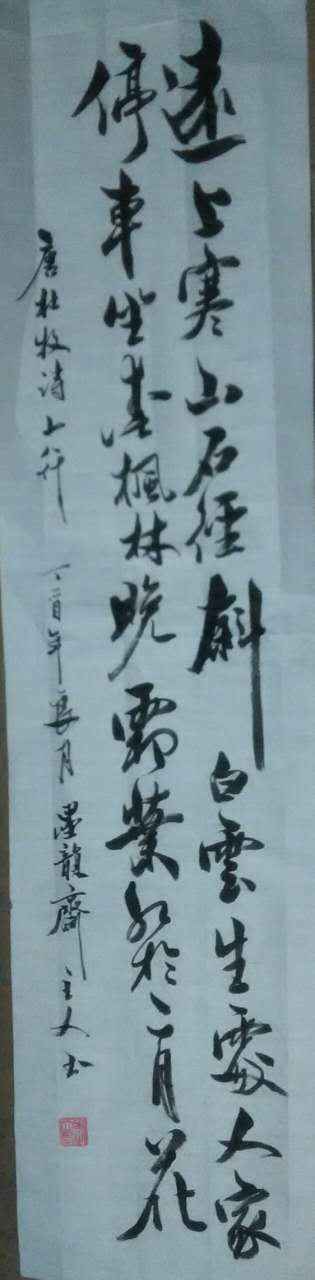 遠上寒山石徑斜 白雲生處人家
停車坐愛楓林晚霜葉紅於二月花
唐杜牧詩山行 丁酉年月 墨龍齋主人书